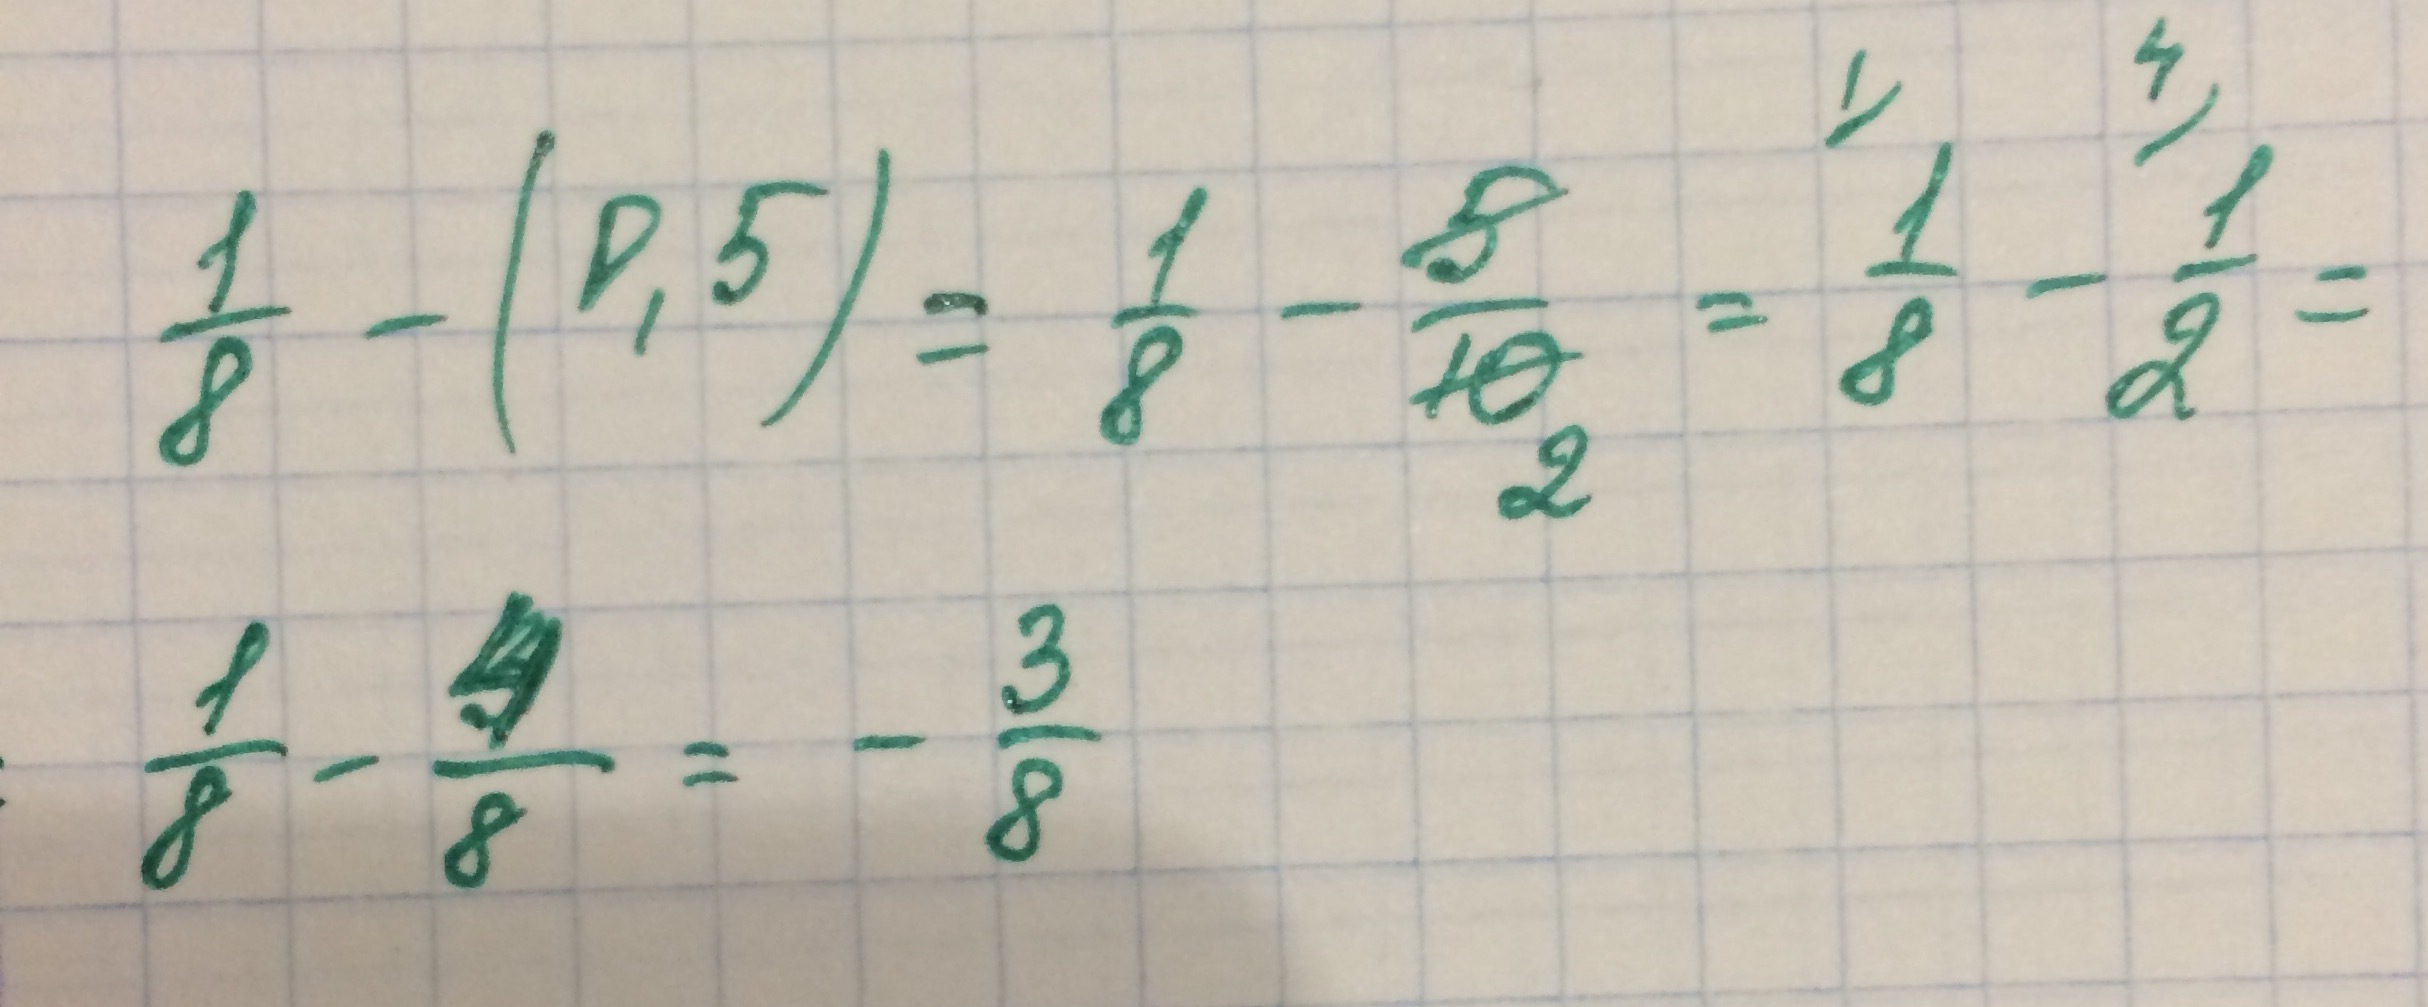 1/8 - (0,5) = 1/8 - 5/10 2 = 1/8 - 1/2 =
1/8 - 4/8 = - 3/8